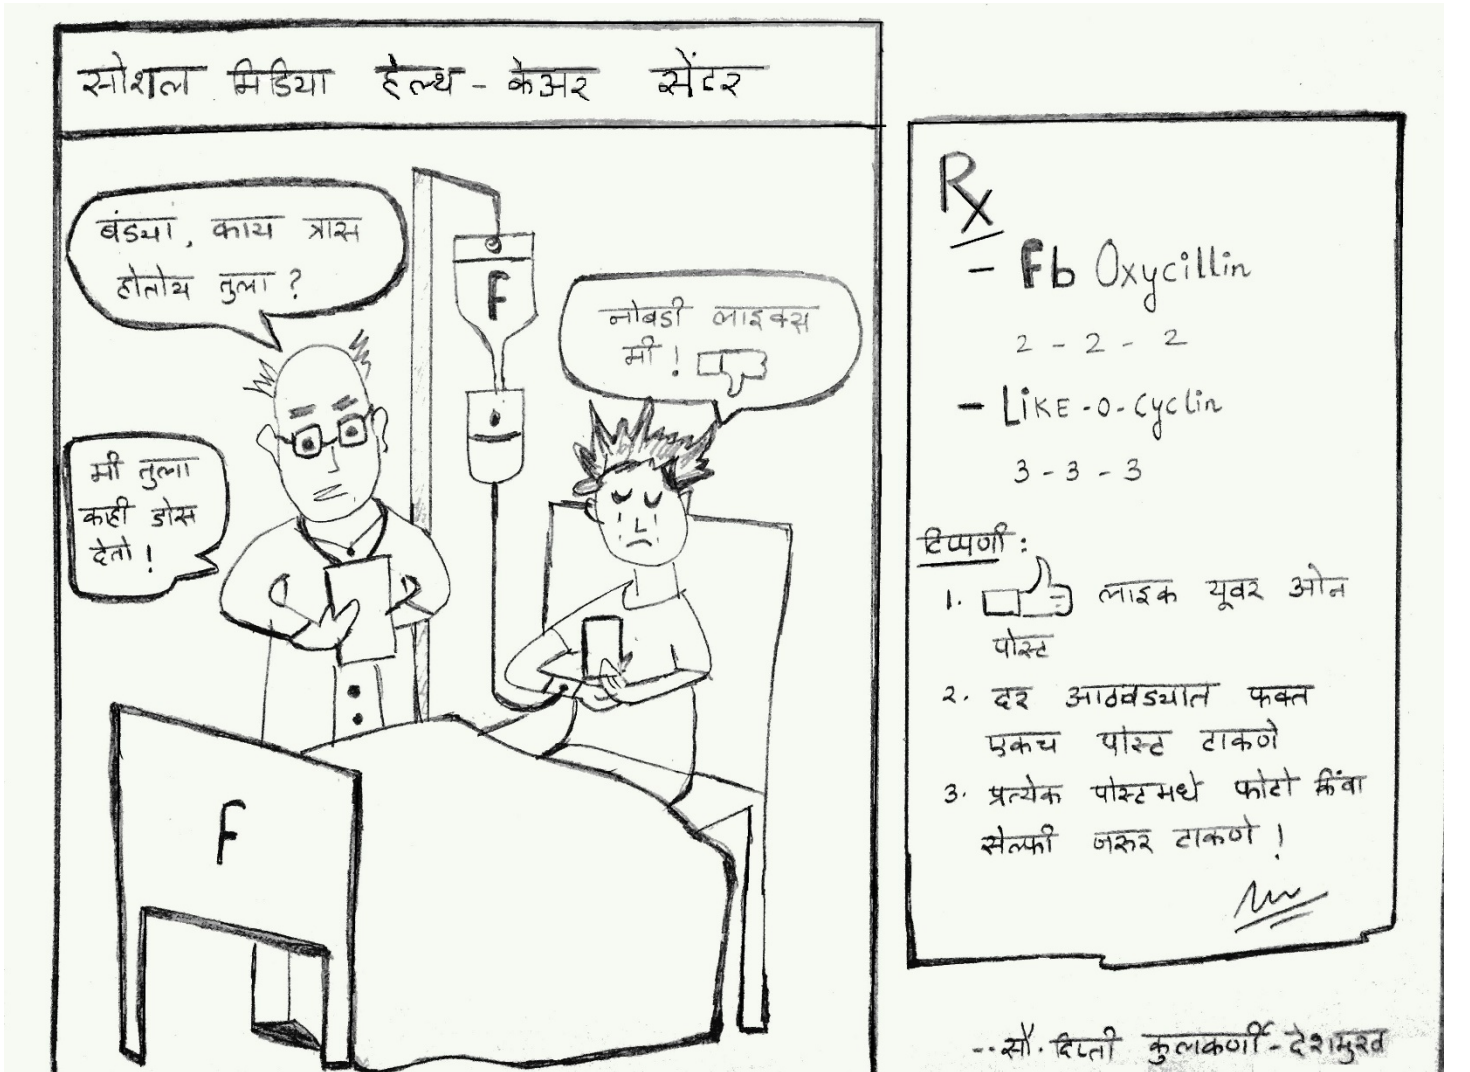 सोशल मिडिया हेल्थ - केअर सेंटर
बंड्या, काय त्रास
होतोय तुला ?
मी तुला
काही डोस
देतो !
F
नोबडी लाइक्स
मी !
F
Rx
- Fb Oxycillin
2 - 2 - 2
- LIKE-O-Cyclin
3 - 3 - 3
टिप्पणी :
1. लाइक यूवर ओन
पोस्ट
2. दर आठवड्यात फक्त
एकच पोस्ट टाकणे
3. प्रत्येक पोस्टमधे फोटो किंवा
सेल्फी जरुर टाकणे !
--सौ. दिप्ती कुलकर्णी-देशमुख